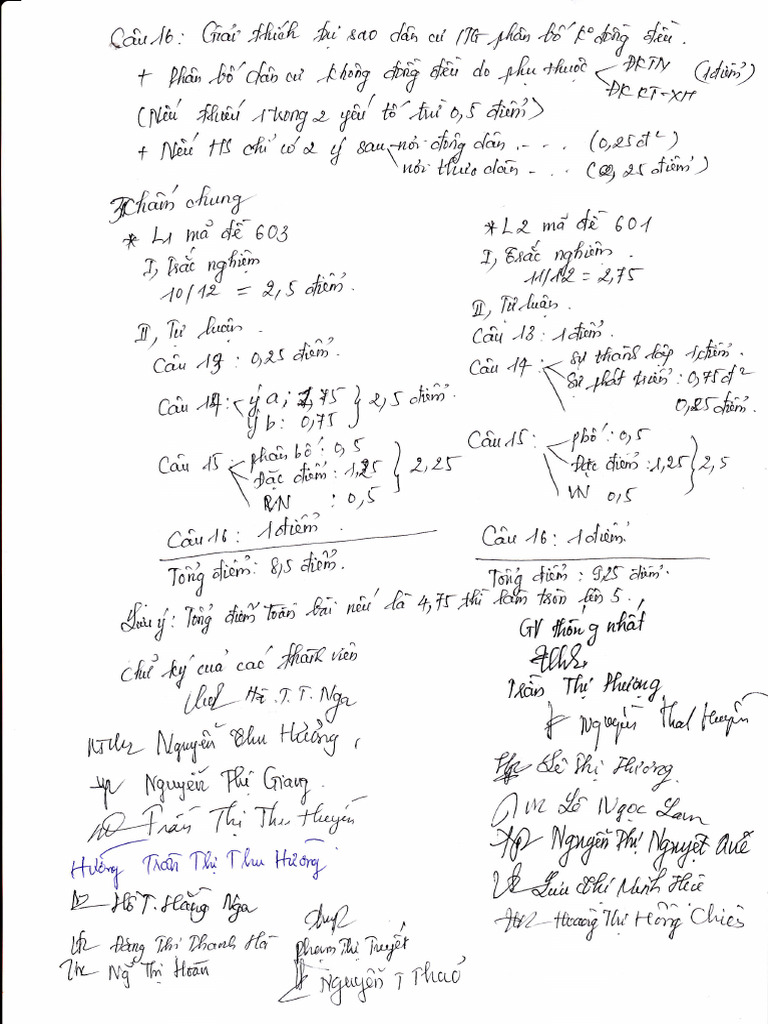 Câu 16: Giải thích tại sao dân cư TG phân bố ko đồng đều.
+ Phân bố dân cư không đồng đều do phụ thuộc ĐKTN (1điểm)
ĐK KT-XH
(Nếu thiếu 1 trong 2 yếu tố trừ 0,5 điểm)
+ Nếu HS chỉ có 2 ý sau nơi đông dân ... (0,25đ)
nơi thưa dân ... (0,25 điểm)
Chấm chung
* L1 mã đề 603
I, Trắc nghiệm
10/12 = 2,5 điểm.
II, Tự luận.
Câu 13: 0,25 điểm.
Câu 14: ý a: 1,75
ý b: 0,75 } 2,5 điểm.
Câu 15 phân bố: 0,5
Đặc điểm: 1,25 } 2,25
VN : 0,5
Câu 16: 1 điểm.
Tổng điểm: 8,5 điểm.
* L2 mã đề 601
I, Trắc nghiệm.
11/12 = 2,75
II, Tự luận.
Câu 13: 1 điểm.
Câu 14: Sự thành lập 1 điểm.
Sự phát triển: 0,75đ
0,25 điểm.
Câu 15: pbố: 0,5
Đặc điểm: 1,25 } 2,5
VN 0,5
Câu 16: 1 điểm.
Tổng điểm: 9,25 điểm.
Lưu ý: Tổng điểm toàn bài nếu là 4,75 thì làm tròn lên 5.
Chữ ký của các thành viên
Hà.T.T. Nga
Nguyễn Thu Hưởng
Nguyễn Thị Giang
Trần Thị Thu Huyền
Hường Trần Thị Thu Hường
Hồ T. Hằng Nga
Đặng Thị Thanh Hà
Ng Thị Hoàn
Phạm Thị Tuyết
Nguyễn T Thảo
GV thống nhất
Trần Thị Phượng
Nguyễn Thái Huyền
Lê Thị Thương
Lê Ngọc Lan
Nguyễn Thị Nguyệt Quế
Lưu Thị Minh Huế
Hoàng Thị Hồng Chiên